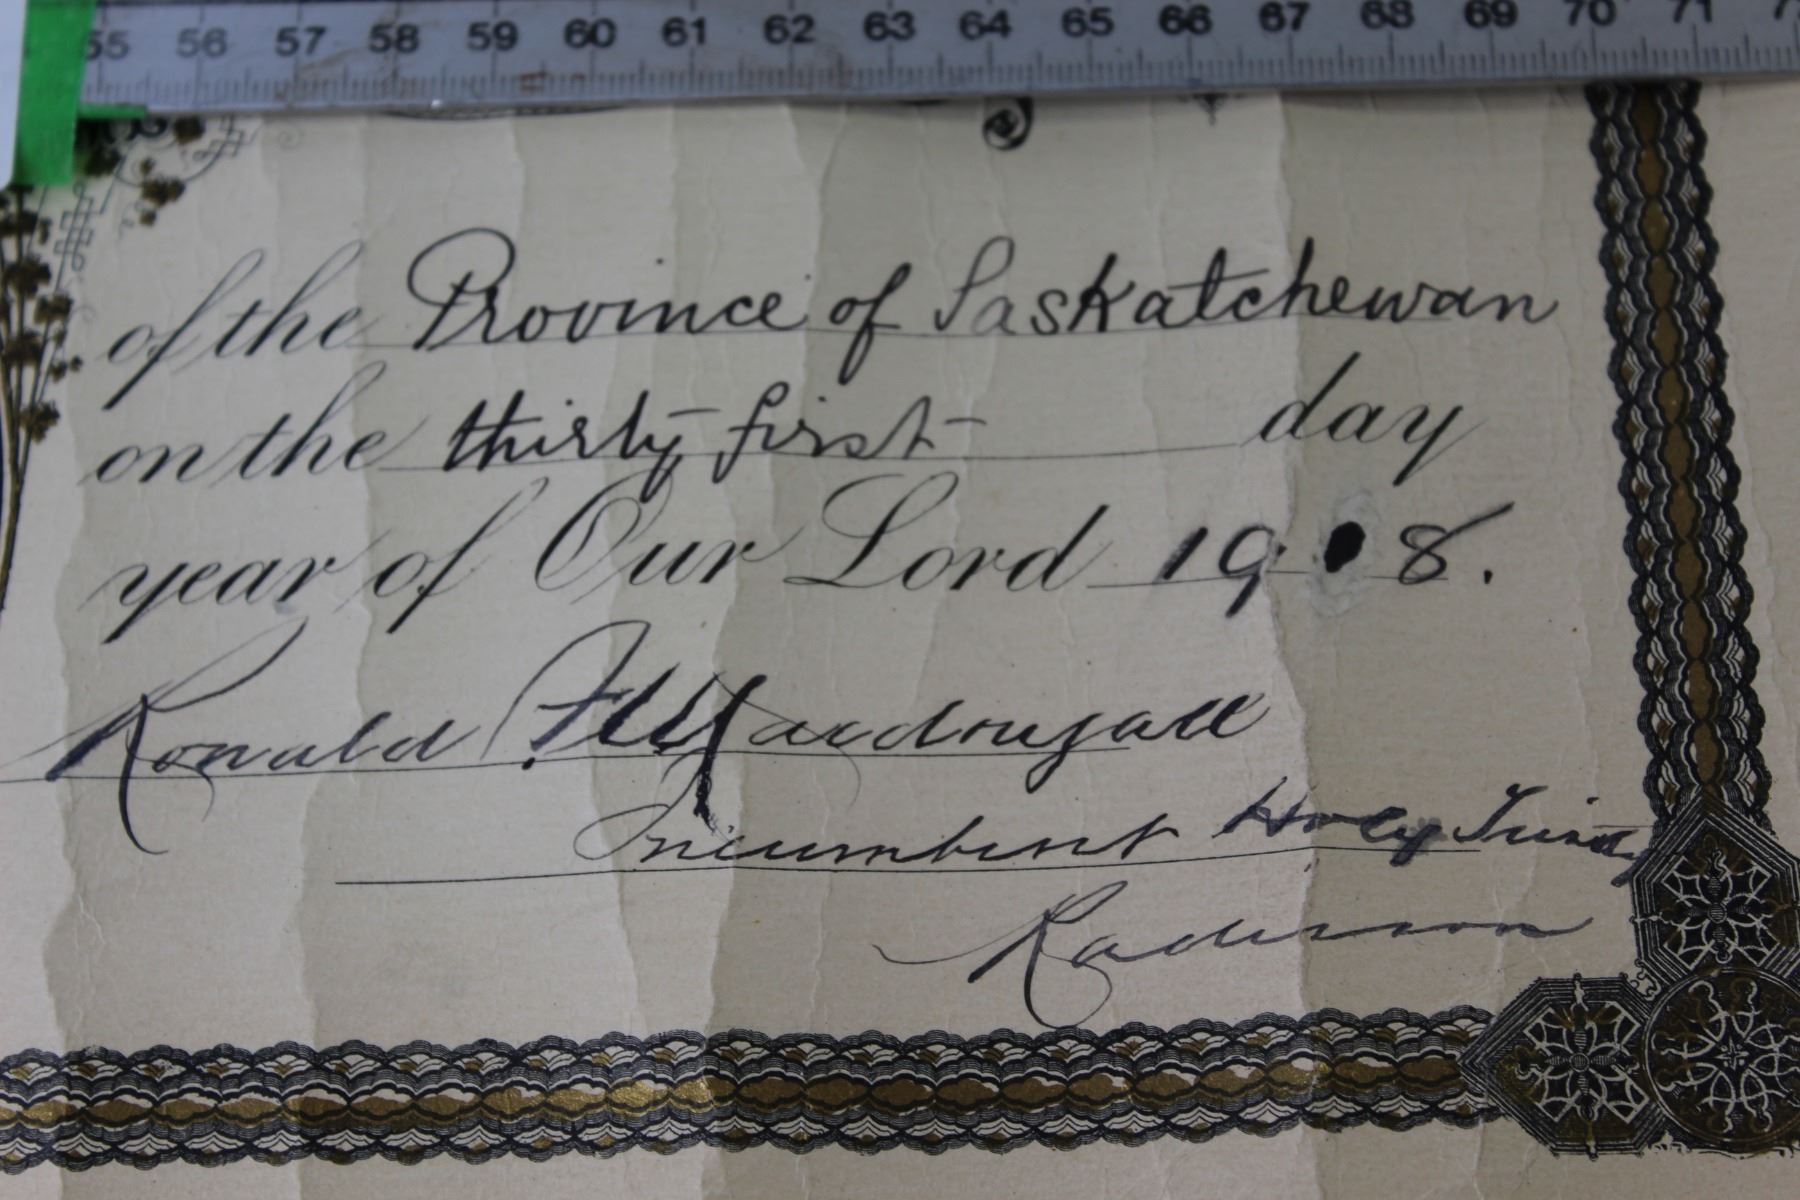 55 56 57 58 59 60 61 62 63 64 65 66 67 68 69 70 71
of the Province of Saskatchewan
on the thirty-first- day
year of Our Lord 19 8.
Ronald Macdougall
Incumbent Holy Trinity
Radisson